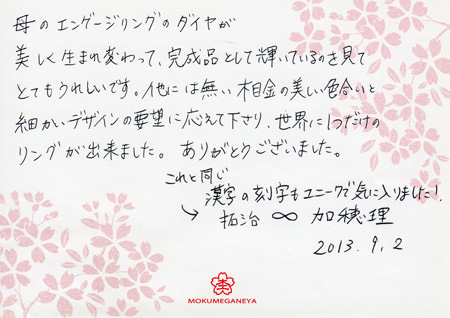 母のエンゲージリングのダイヤが
美しく生まれ変わって、完成品として輝いているのを見て
とてもうれしいです。他には無い相金の美しい色合いと
細かいデザインの要望に応えて下さり、世界に1つだけの
リングが出来ました。ありがとうございました。
これと同じ
漢字の刻字もユニークで気に入りました！
→ 拓治 ∞ 加穂理
2013.9.2
MOKUMEGANEYA